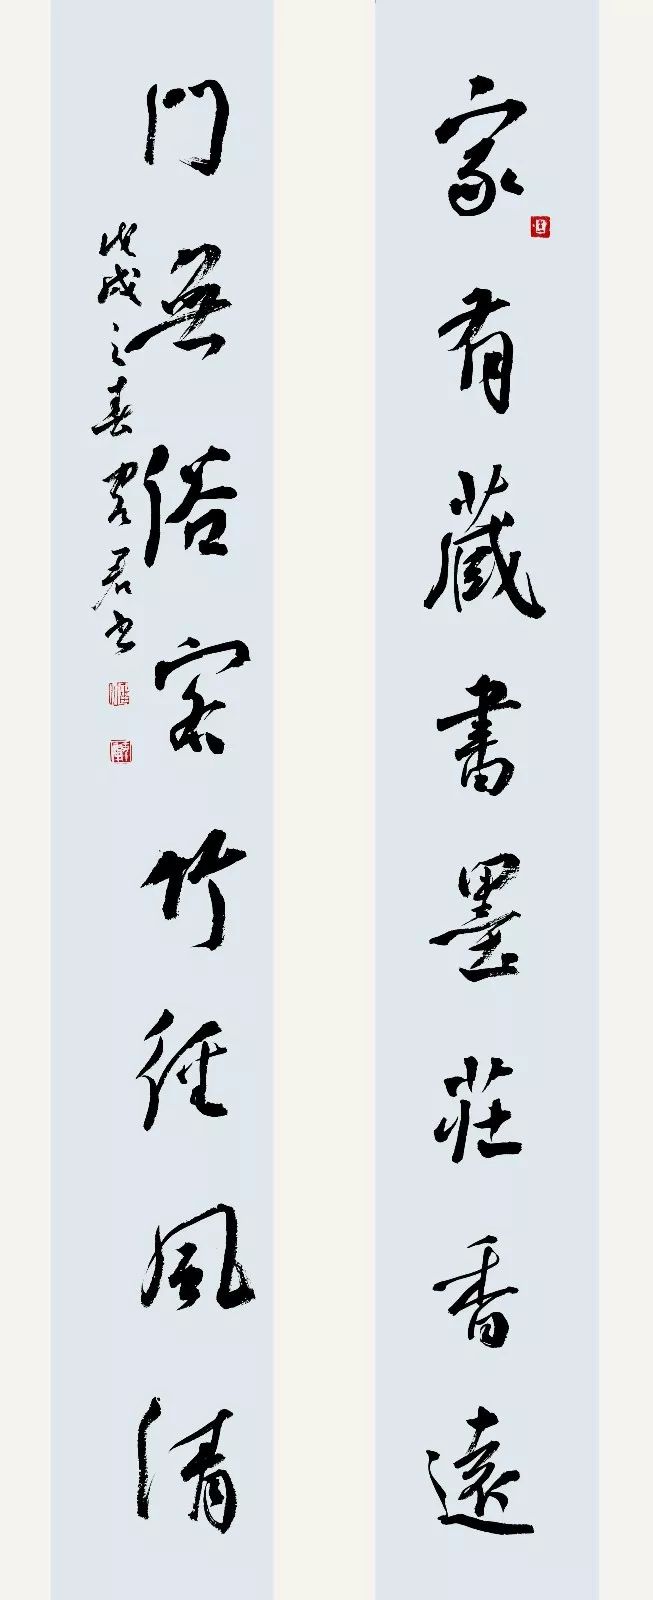 家有藏書墨莊香遠
門無俗客竹徑風清
戊戌之春君书